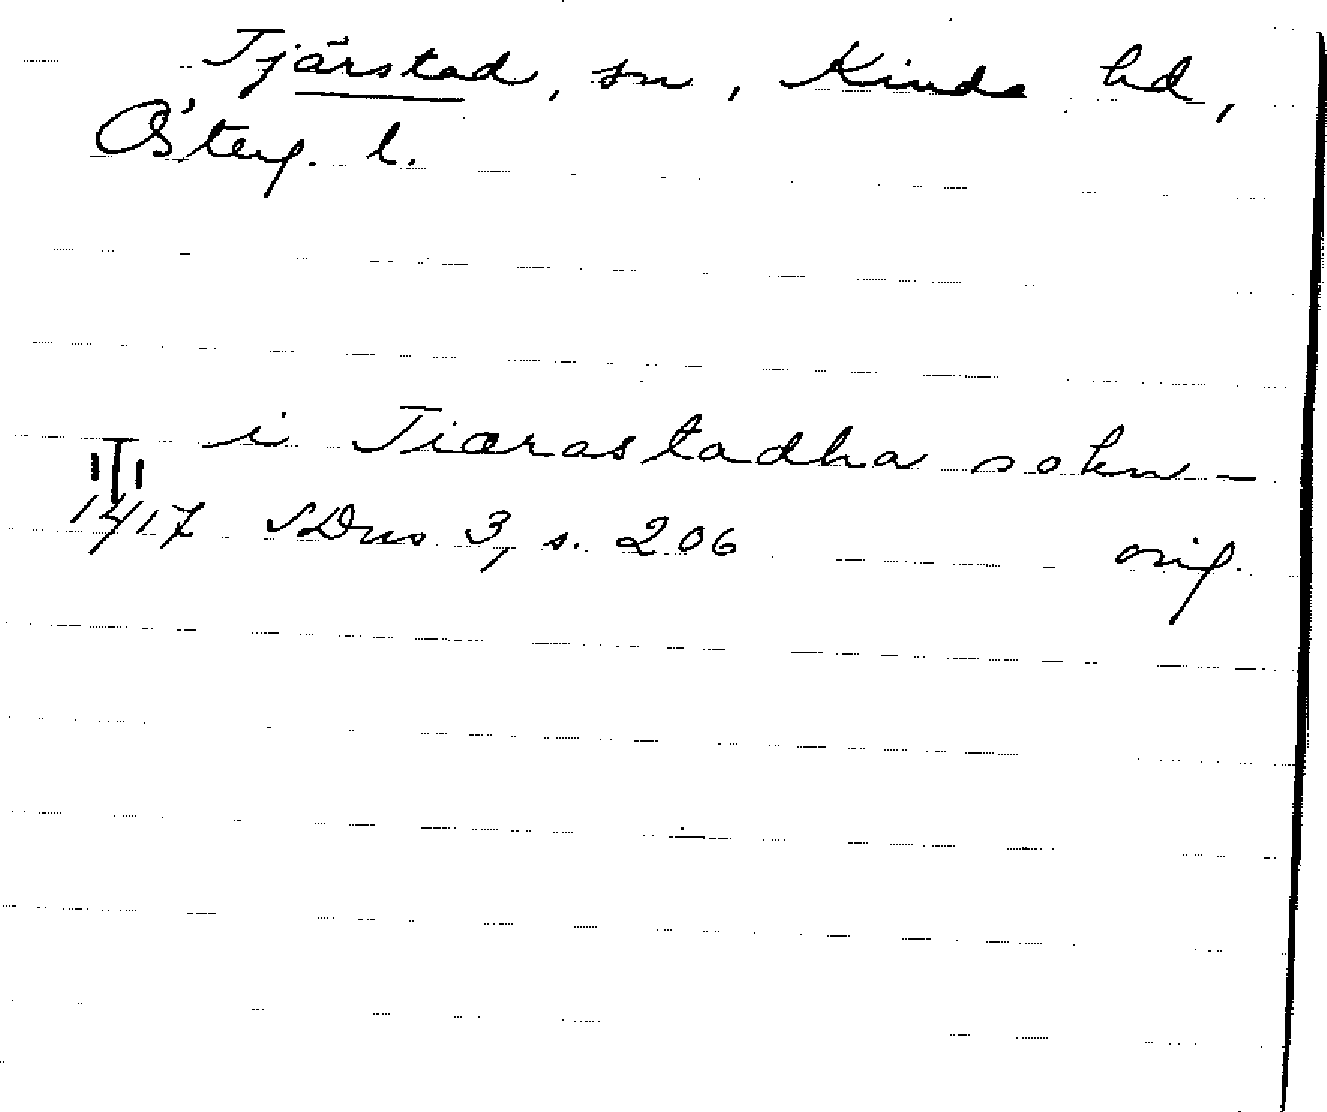 Tjärstad, sn, Kinda hd,
Österg. l.
i Tiærastadha sokn -
1417 SDns 3, s. 206 orig.